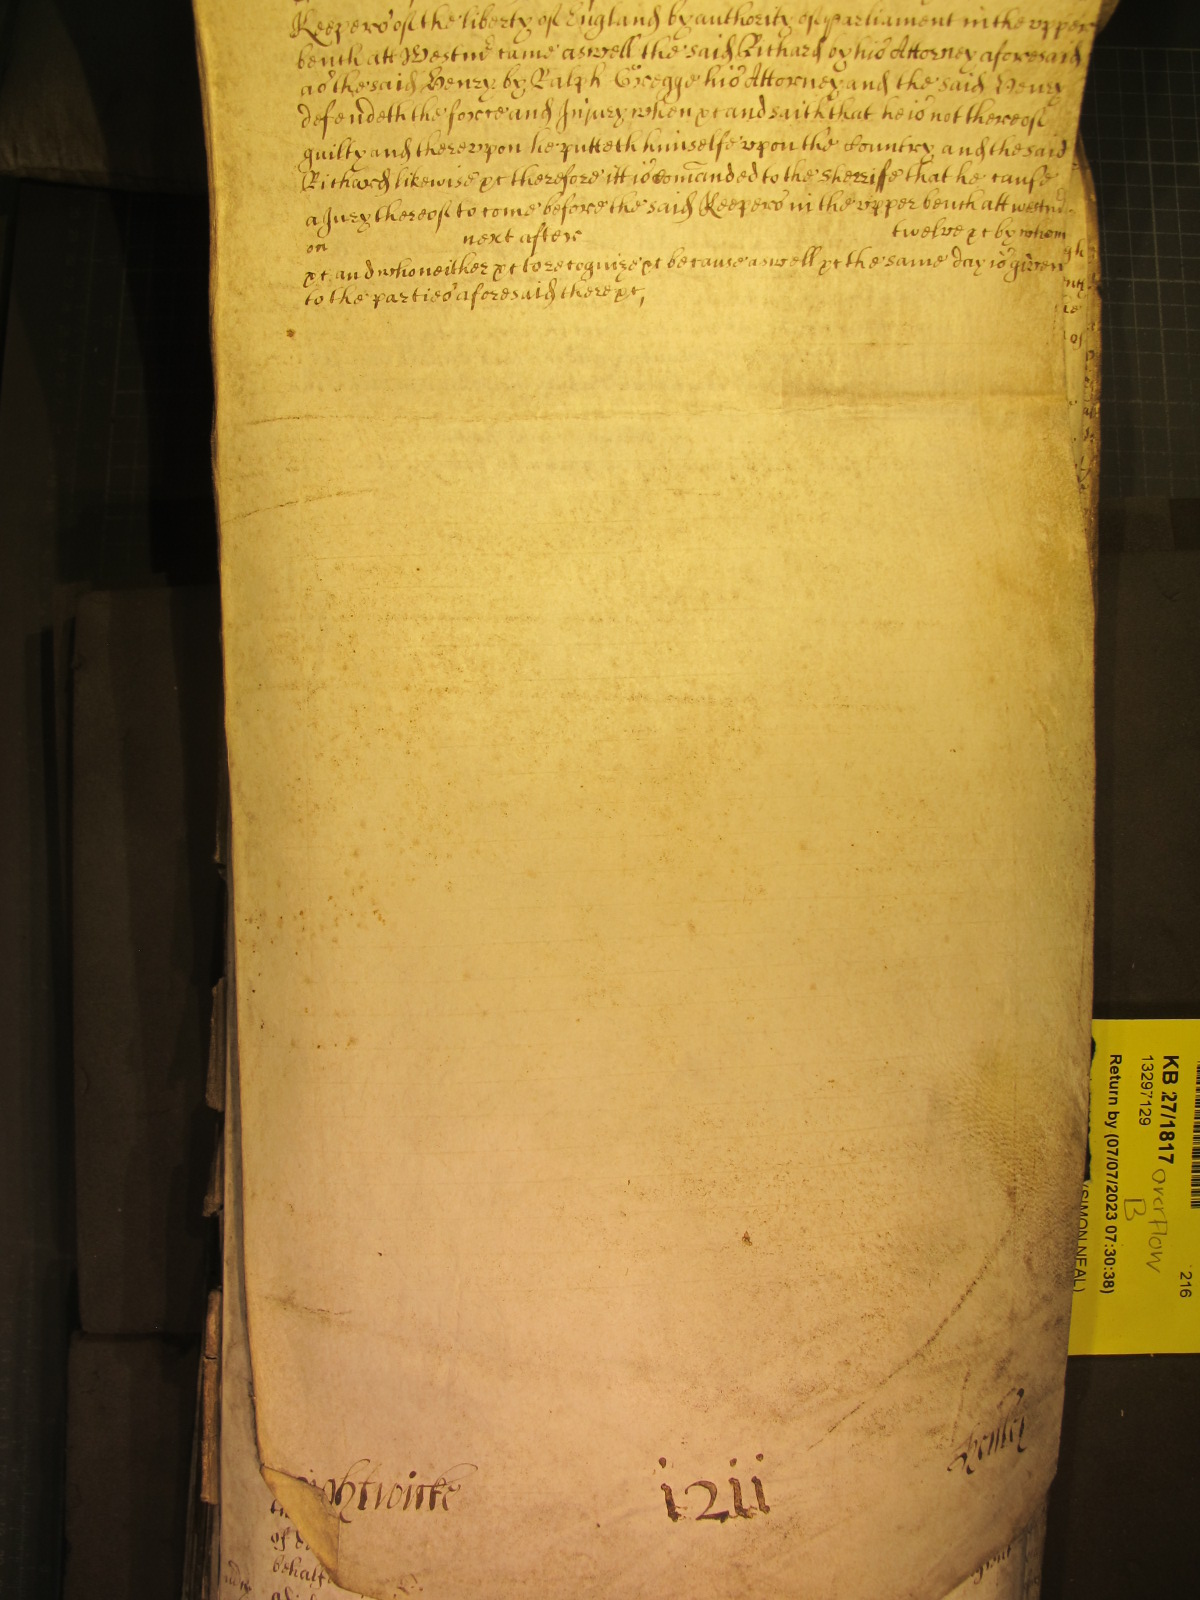 Keepers of the liberty of England by authority of parliament in the vpper
bench att Westm̃ came aswell the said Richard by his Attorney aforesaid
as the said Henry by Ralph Gregge his Attorney and the said Henry
defendeth the force and Injury when &c and saith that he is not thereof
guilty and therevpon he putteth himselfe vpon the Country and the said
Richard likewise &c therefore itt is com̃anded to the Sherriffe that he cause
a Jury thereof to come before the said Keepers in the vpper bench att westm̃
on next after twelve &c by whom
&c and who neither &c to recognize &c because aswell &c the same day is given
to the parties aforesaid there &c,
1211
Henley
behalf
KB 27/1817 overflow
B
13297129
216
Return by (07/07/2023 07:30:38)
(SIMON NEAL)